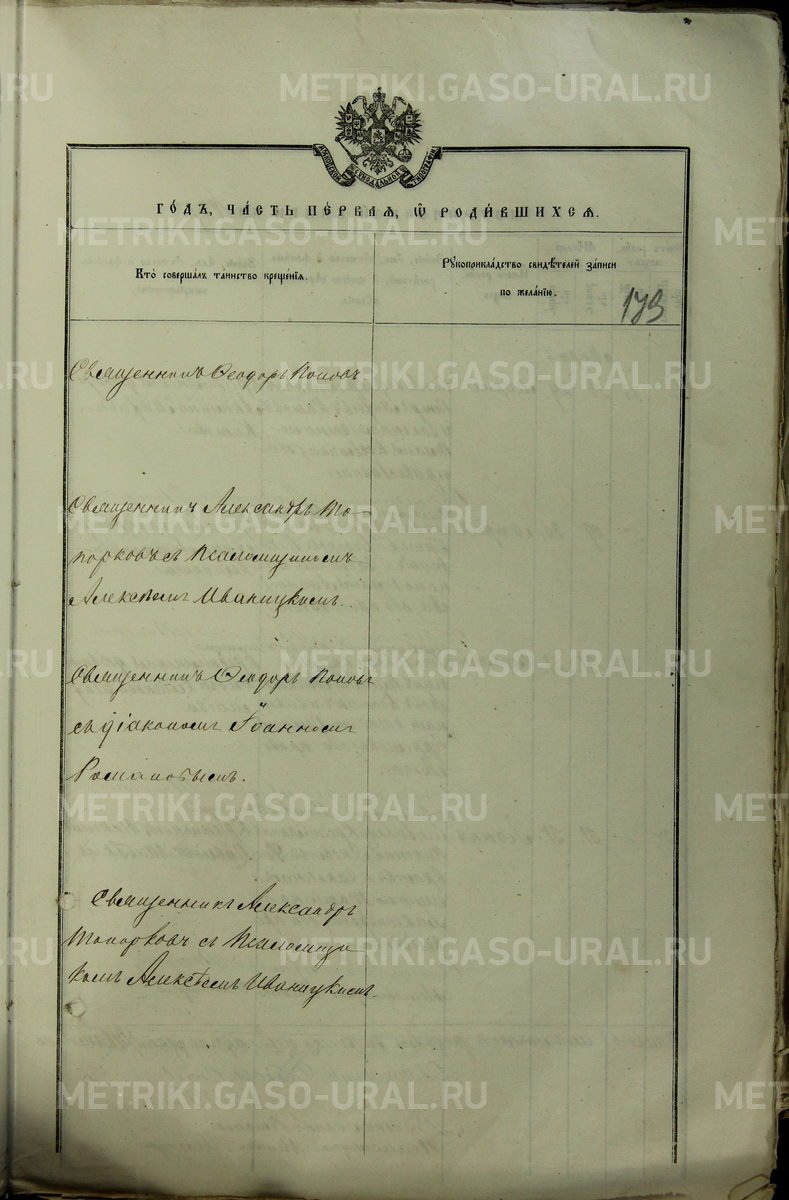 METRIKI.GASO-URAL.RU
МОСКОВСКОЙ СѴНОДАЛЬНОЙ ТИПОГРАФІИ
ГО́ДЪ, ЧА́СТЬ ПЕ́РВАЯ, Ѡ҆ РОДИ́ВШИХСЯ.
Кто̀ соверша́лъ та́инство креще́нїѧ.
Рꙋкоприкла́дство свидѣ́телей за́писи
по жела́нїю.
179
Священникъ Ѳеодоръ Поповъ.
Священникъ Александръ То-
порковъ съ Псаломщикомъ
Алексѣемъ Иваницкимъ.
Священникъ Ѳеодоръ Поповъ
съ діакономъ Іоанномъ
Романовымъ.
Священникъ Александръ
Топорковъ съ Псаломщи
комъ Алексѣемъ Иваницкимъ.